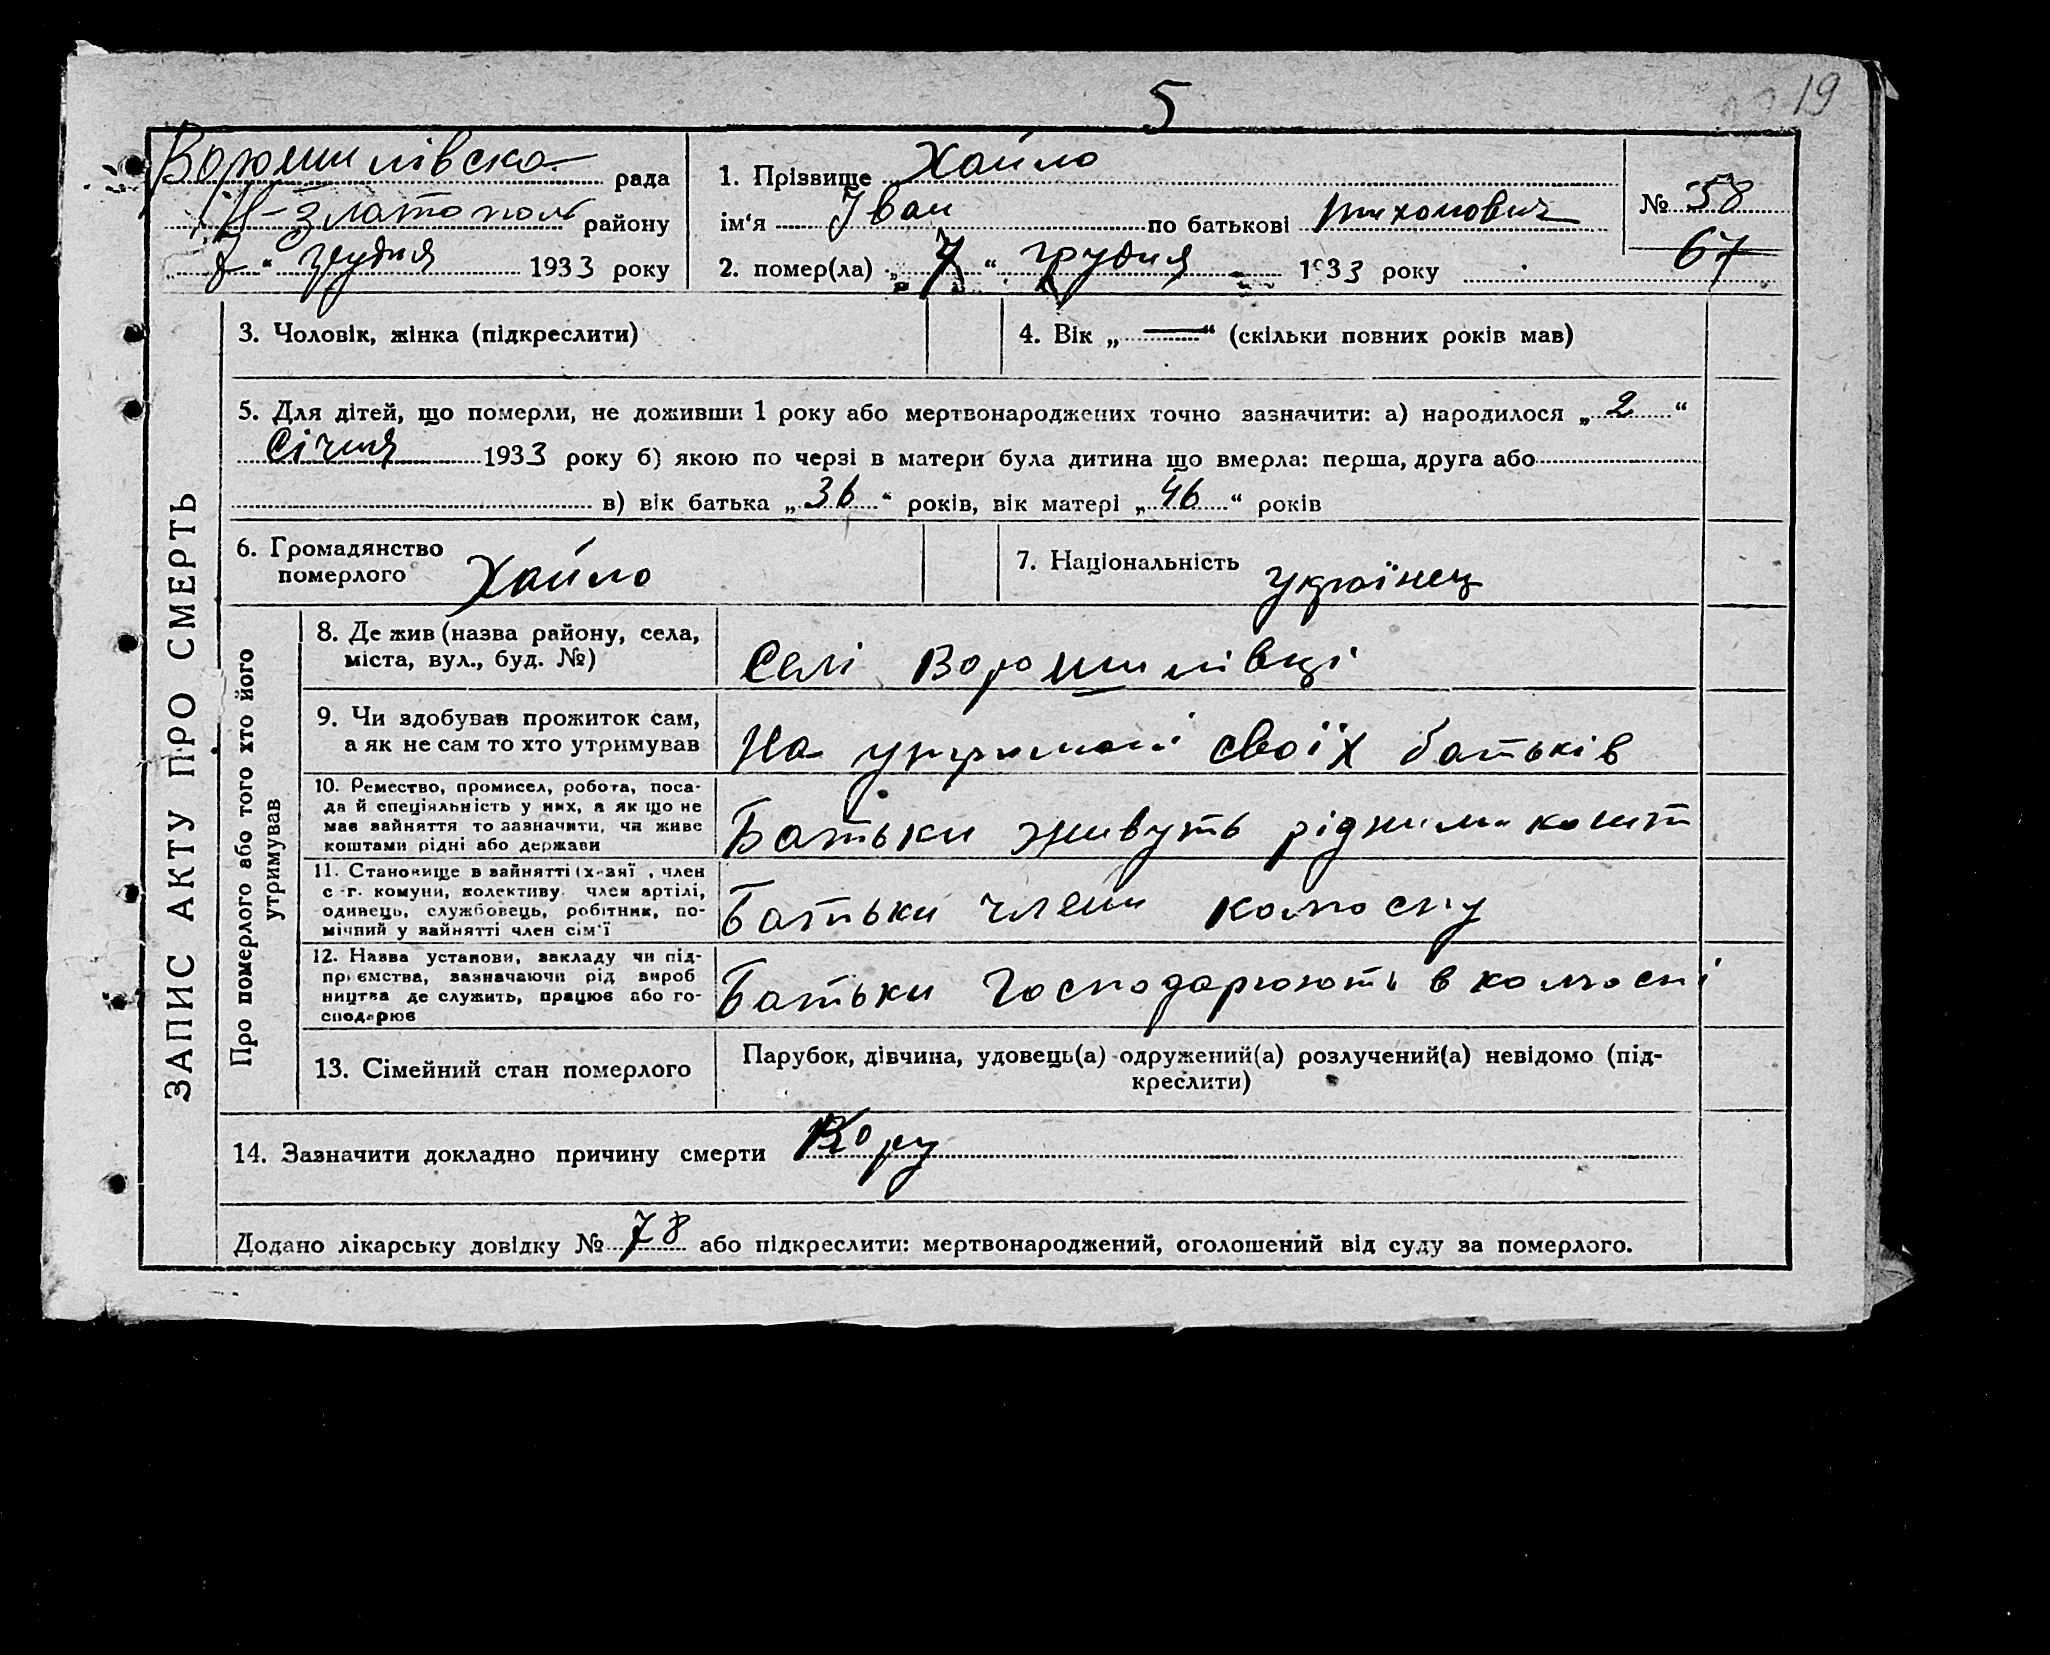 5
19
Ворошилівска рада
Н-Златопол району
„ 8 “ грудня 1933 року
1. Прізвище Хайло
ім‘я Іван по батькові тихонович
2. помер(ла) „ 7 “ грудня 1933 року
№ 58
67
ЗАПИС АКТУ ПРО СМЕРТЬ
3. Чоловік, жінка (підкреслити)
4. Вік „ — “ (скільки повних років мав)
5. Для дітей, що померли, не доживши 1 року або мертвонароджених точно зазначити: а) народилося „ 2 “
Січня 1933 року б) якою по черзі в матери була дитина що вмерла: перша, друга або
в) вік батька „ 36 “ років, вік матері „ 46 “ років
6. Громадянство
померлого Хайло
7. Національність українец
Про померлого або того хто його
утримував
8. Де жив (назва району, села,
міста, вул., буд. №)
Селі Ворошилівці
9. Чи здобував прожиток сам,
а як не сам то хто утримував
На утримані своїх батьків
10. Ремество, промисел, робота, поса-
да й спеціяльність у них, а як що не
має зайняття то зазначити, чи живе
коштами рідні або держави
Батьки живуть рідними кошт
11. Становище в зайнятті (х-зяї , член
с-г. комуни, колективу, член артілі,
одинець, службовець, робітник, по-
мічний у зайнятті член сім‘ї
Батьки члени колоспу
12. Назва установи, закладу чи під-
приємства, зазначаючи рід вироб
ництва де служить, працює або го-
сподарює
Батьки Господарюють в колоспі
13. Сімейний стан померлого
Парубок, дівчина, удовець(а) одружений(а) розлучений(а) невідомо (під-
креслити)
14. Зазначити докладно причину смерти Кору
Додано лікарську довідку № 78 або підкреслити: мертвонароджений, оголошений від суду за померлого.